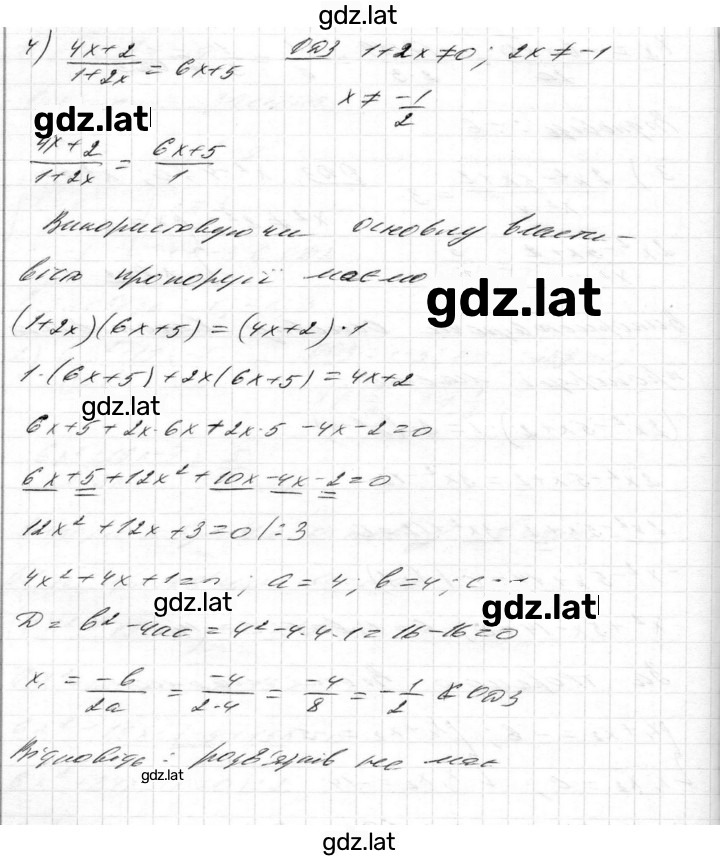 gdz.lat
4) (4x+2)/(1+2x) = 6x+5  ОДЗ 1+2x≠0; 2x≠-1
x ≠ -1/2
gdz.lat
(4x+2)/(1+2x) = (6x+5)/1
Використовуючи основну власти-
вість пропорції маємо
gdz.lat
(1+2x)(6x+5)=(4x+2)·1
1·(6x+5)+2x(6x+5)=4x+2
gdz.lat
6x+5+2x·6x+2x·5-4x-2=0
6x+5+12x²+10x-4x-2=0
12x²+12x+3=0/:3
4x²+4x+1=0; a=4; b=4;
gdz.lat
gdz.lat
D=b²-4ac=4²-4·4·1=16-16=0
x₁ = -b/2a = -4/(2·4) = -4/8 = -1/2 ОДЗ
Відповідь: розв'язків не має
gdz.lat
gdz.lat